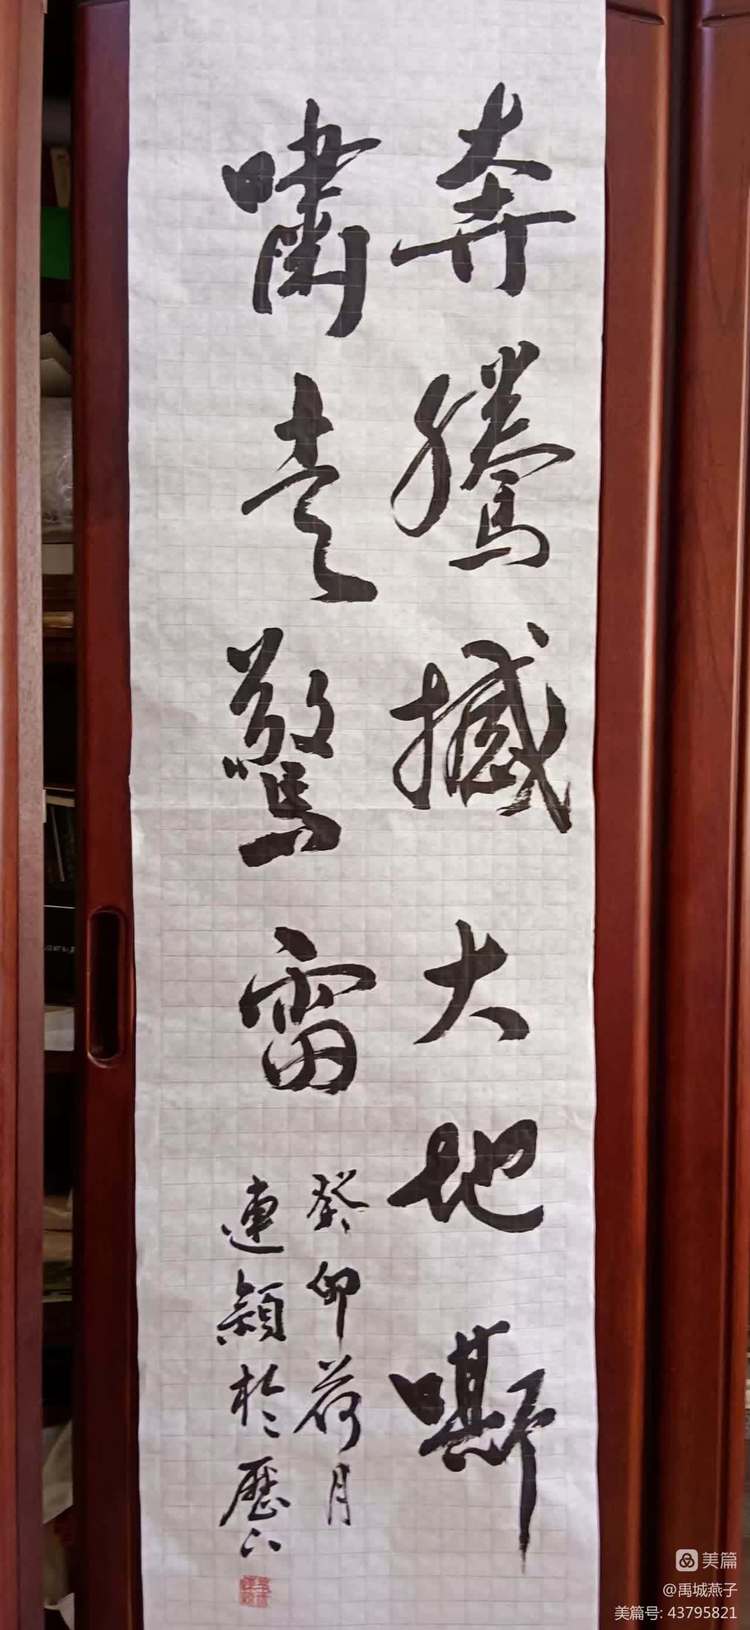 奔騰撼大地嘶
嘯走驚雷
癸卯荷月
連穎於歷下
美篇
@禹城燕子
美篇号: 43795821